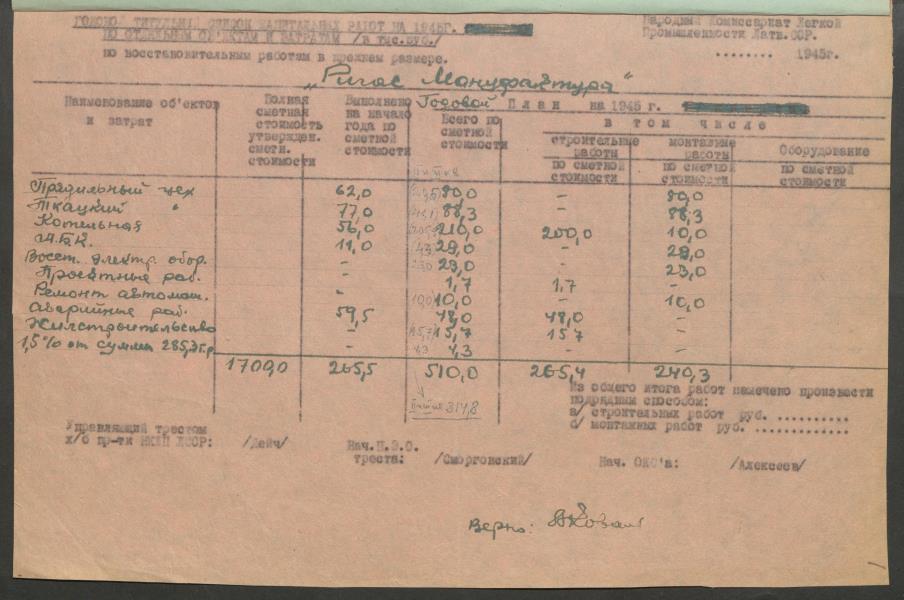 ГОДОВОЙ ТИТУЛЬНЫЙ СПИСОК КАПИТАЛЬНЫХ РАБОТ НА 1945Г.
ПО ОТДЕЛЬНЫМ ОБ'ЕКТАМ И ЗАТРАТАМ /в тыс.руб./
по восстановительным работам в прежнем размере.
Народный Комиссариат Легкой
Промышленности Латв.ССР.
........ 1945г.
„Ригас Мануфактура"
Наименование об'ектов и затрат
Полная сметная стоимость утвержден. сметн. стоимости
Выполнено на начало года по сметной стоимости
Годовой План на 1945 г.
Всего по сметной стоимости
в том числе
строительные работы
по сметной стоимости
монтажные работы
по сметной стоимости
Оборудование
по сметной стоимости
Прядильный цех 62,0 80,0 – 80,0
Ткацкий " 77,0 88,3 – 88,3
Котельная 56,0 210,0 200,0 10,0
11,0 29,0 – 29,0
Восст. электр. обор. – 23,0 – 23,0
Проектные раб. – 1,7 1,7 –
Ремонт автомаш. 10,0 – 10,0
Аварийные раб. 59,5 48,0 48,0 –
Жилстроительство – (15,7) 15,7 15,7 –
1,5% от суммы 285,3 т.р. – 4,3 4,3 – –
1700,0 265,5 510,0 265,4 240,3
314,8
Из общего итога работ намечено произвести
подрядным способом:
а/ строительных работ руб. ..........
б/ монтажных работ руб. .............
Управляющий трестом
х/б пр-ти НКЛП ЛССР: /Дейч/
Нач.П.Э.О.
треста: /Сморговский/
Нач. ОКС'а: /Алексеев/
Верно: